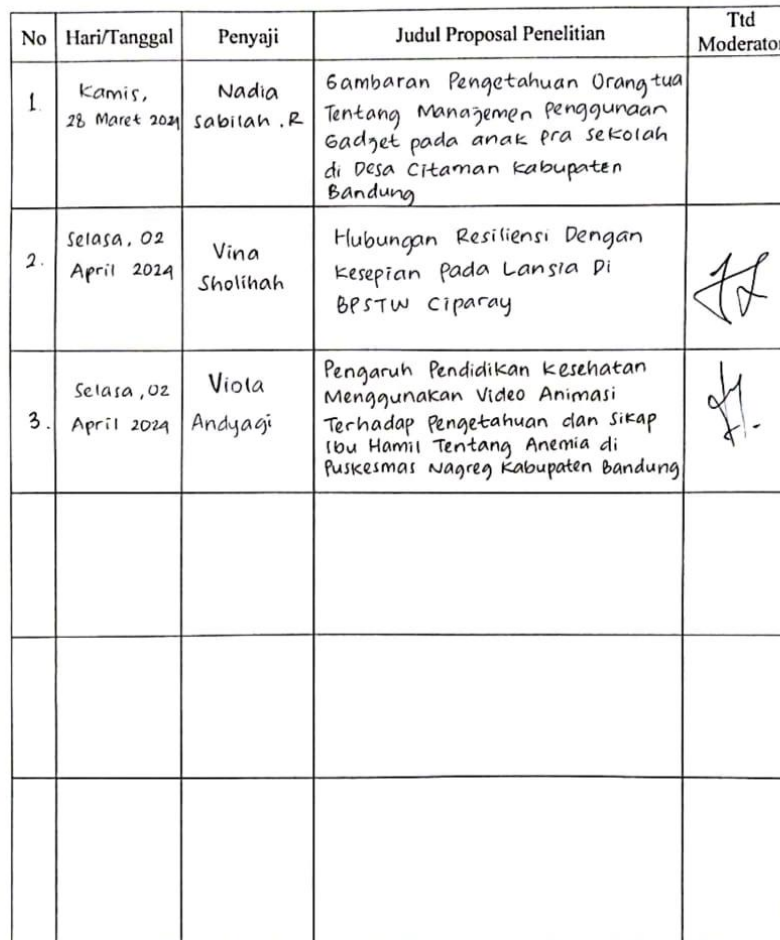 No
Hari/Tanggal
Penyaji
Judul Proposal Penelitian
Ttd
Moderator
1.
Kamis,
28 Maret 2024
Nadia
Sabilah .R
Gambaran Pengetahuan Orangtua
Tentang Manajemen Penggunaan
Gadget pada anak pra sekolah
di Desa Citaman Kabupaten
Bandung
2.
Selasa, 02
April 2024
Vina
Sholihah
Hubungan Resiliensi Dengan
Kesepian Pada Lansia Di
BPSTW Ciparay
3.
Selasa, 02
April 2024
Viola
Andyagi
Pengaruh Pendidikan Kesehatan
Menggunakan Video Animasi
Terhadap Pengetahuan dan Sikap
Ibu Hamil Tentang Anemia di
Puskesmas Nagreg Kabupaten Bandung